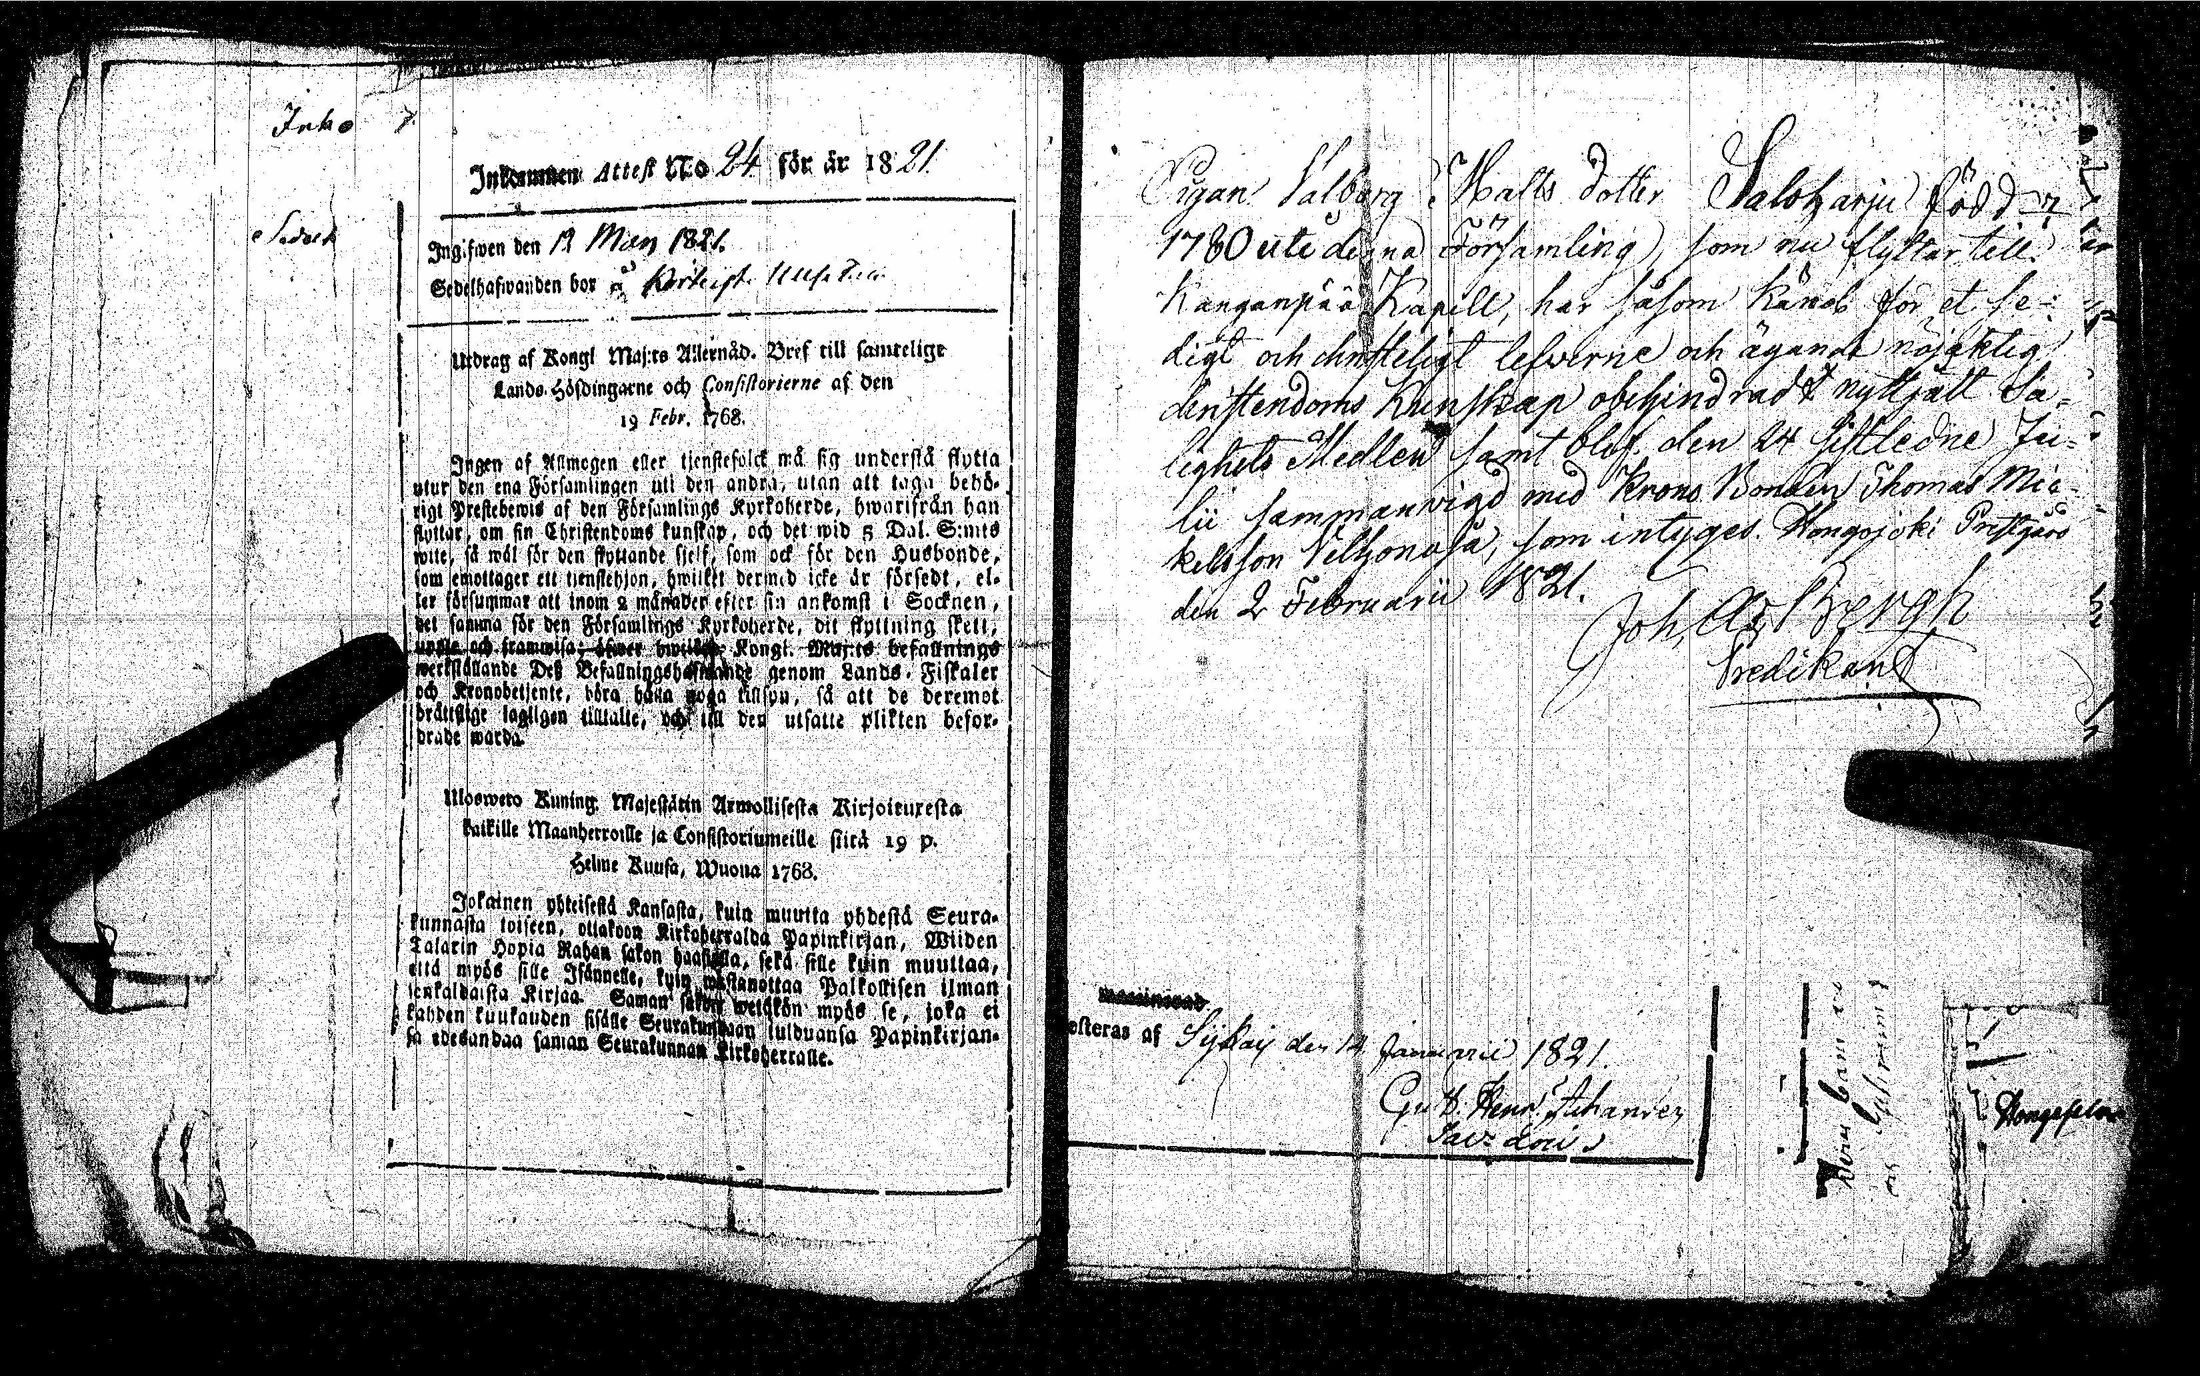 Inkommen Attest No 24 för år 1821.
Ingifwen den 12 Mars 1821.
Sedelhafwanden bor
Utdrag af Kongl Maj:ts Allernåd. Bref till samtelige
Lands-Höfdingarne och Consistorierne af den
19 Febr. 1768.
Ingen af Allmogen eller tjenstefolck må sig understå flytta
utur den ena Församlingen till den andra, utan att taga behö-
rigt Prestebewis af den Församlings Kyrkoherde, hwarifrån han
flyttar, om sin Christendoms kunskap, och det wid 5 Dal. S:mts
wite, så wäl för den flyttande sjelf, som ock för den Husbonde,
som emottager ett tjenstehjon, hwilket dermed icke är försedt, el-
ler försummar att inom 2 månader efter sin ankomst i Socknen,
det samma för den Församlings Kyrkoherde, dit flyttning skett,
upte och framwisa; öfwer hwilken Kongl. Maj:ts befallnings
werkställande Deß Befallningshafwande genom Lands-Fiskaler
och Kronobetjente, böra hålla noga tillsyn, så att de deremot
brättslige lagligen tilltalte, och till den utsatte plikten befor-
drade warda.
Ulosweto Kuning. Majestätin Armollisesta Kirjoituxesta
kaikille Maanherroille ja Consistoriumeille siitä 19 p.
Helme Kuusa, Wuona 1768.
Jokainen yhteisestä Kansasta, kuin muutta yhdestä Seura-
kunnasta toiseen, ottakoon Kirkoherralda Papinkirjan, Wiiden
Talarin Hopia Rahan sakon haastolla, sekä sille kuin muuttaa,
että myös sille Isännelle, kuin wastanottaa Palkollisen ilman
senkaldaista Kirjaa. Saman sakon wetäkön myös se, joka ei
kahden kuukauden sisälle Seurakundaan tulduansa Papinkirjan-
sa edesandaa saman Seurakunnan Kirkoherralle.
Pigan Valborg Matts dotter Saloharju född
1780 uti denna Församling, som nu flyttar till
Kanganpää Kapell, har såsom känd för et se-
digt och christeligt lefverne och ägande nöjaktig
christendoms Kunskap obehindradt nyttjatt Sa-
lighets Medlen samt blef den 24 sistledne Ju-
lii sammanvigd med Krono Bonden Thomas Mic-
kelsson Velhonoja, som intyges. Hongojoki Prestgård
den 2 Februarii 1821.
Joh. Bergh
Predikant
esteras af den 14 Januarii 1821.
Gust. Henr.